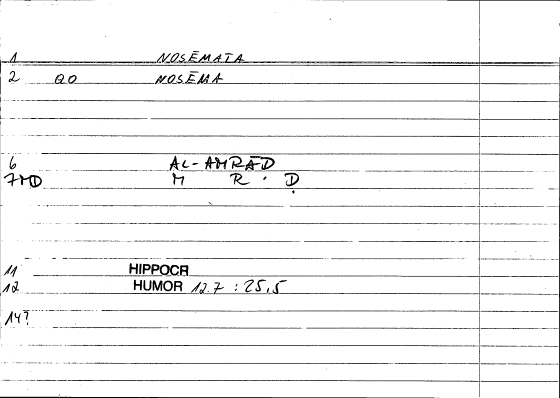 1 NOSĒMATA
2 QO NOSĒMA
6 AL-AMRĀḌ
7MD M R . Ḍ
11 HIPPOCR
12 HUMOR 12.7 : 25,5
14?